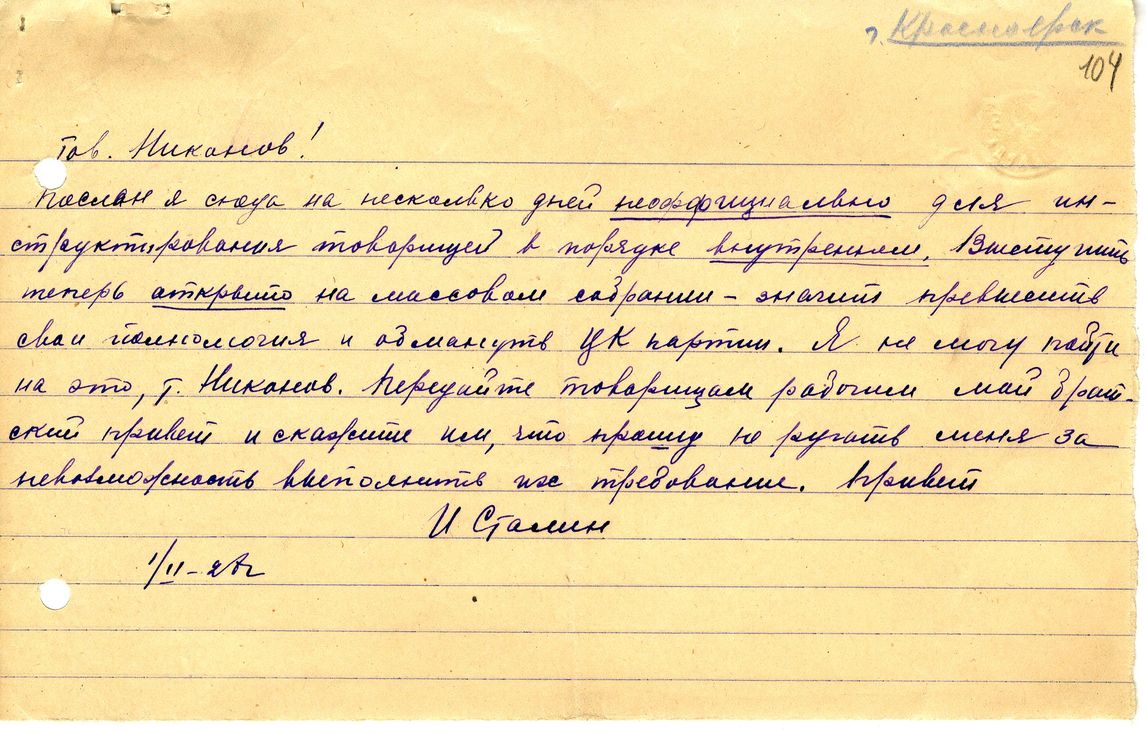 г. Красноярск
104
Тов. Никонов!
Послан я сюда на несколько дней неоффициально для ин-
структирования товарищей в порядке внутреннем. Выступить
теперь открыто на массовом собрании – значит превысить
свои полномочия и обмануть ЦК партии. Я не могу пойти
на это, т. Никонов. Передайте товарищам рабочим мой брат-
ский привет и скажите им, что прошу не ругать меня за
невозможность выполнить их требование. Привет
И Сталин
1/II–28г